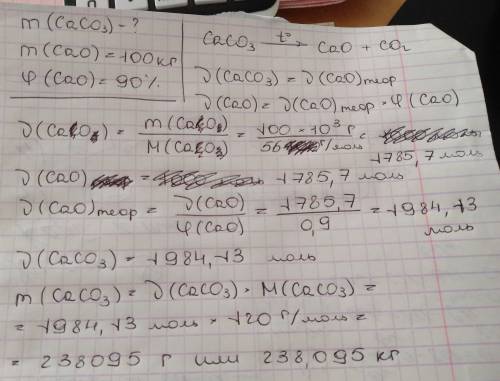 m (CaCO₃) - ?
m (CaO) = 100 кг
φ (CaO) = 90%
CaCO₃ —t°→ CaO + CO₂
ν(CaCO₃) = ν(CaO)теор
ν(CaO) = ν(CaO)теор · φ (CaO)
ν(CaO) = m(CaO) / M(CaO) = 100 · 10³ г / 56 г/моль = 1785,7 моль
ν(CaO) = 1785,7 моль
ν(CaO)теор = ν(CaO) / φ(CaO) = 1785,7 / 0,9 = 1984,13 моль
ν(CaCO₃) = 1984,13 моль
m(CaCO₃) = ν(CaCO₃) · M(CaCO₃) =
= 1984,13 моль · 120 г/моль =
= 238095 г или 238,095 кг